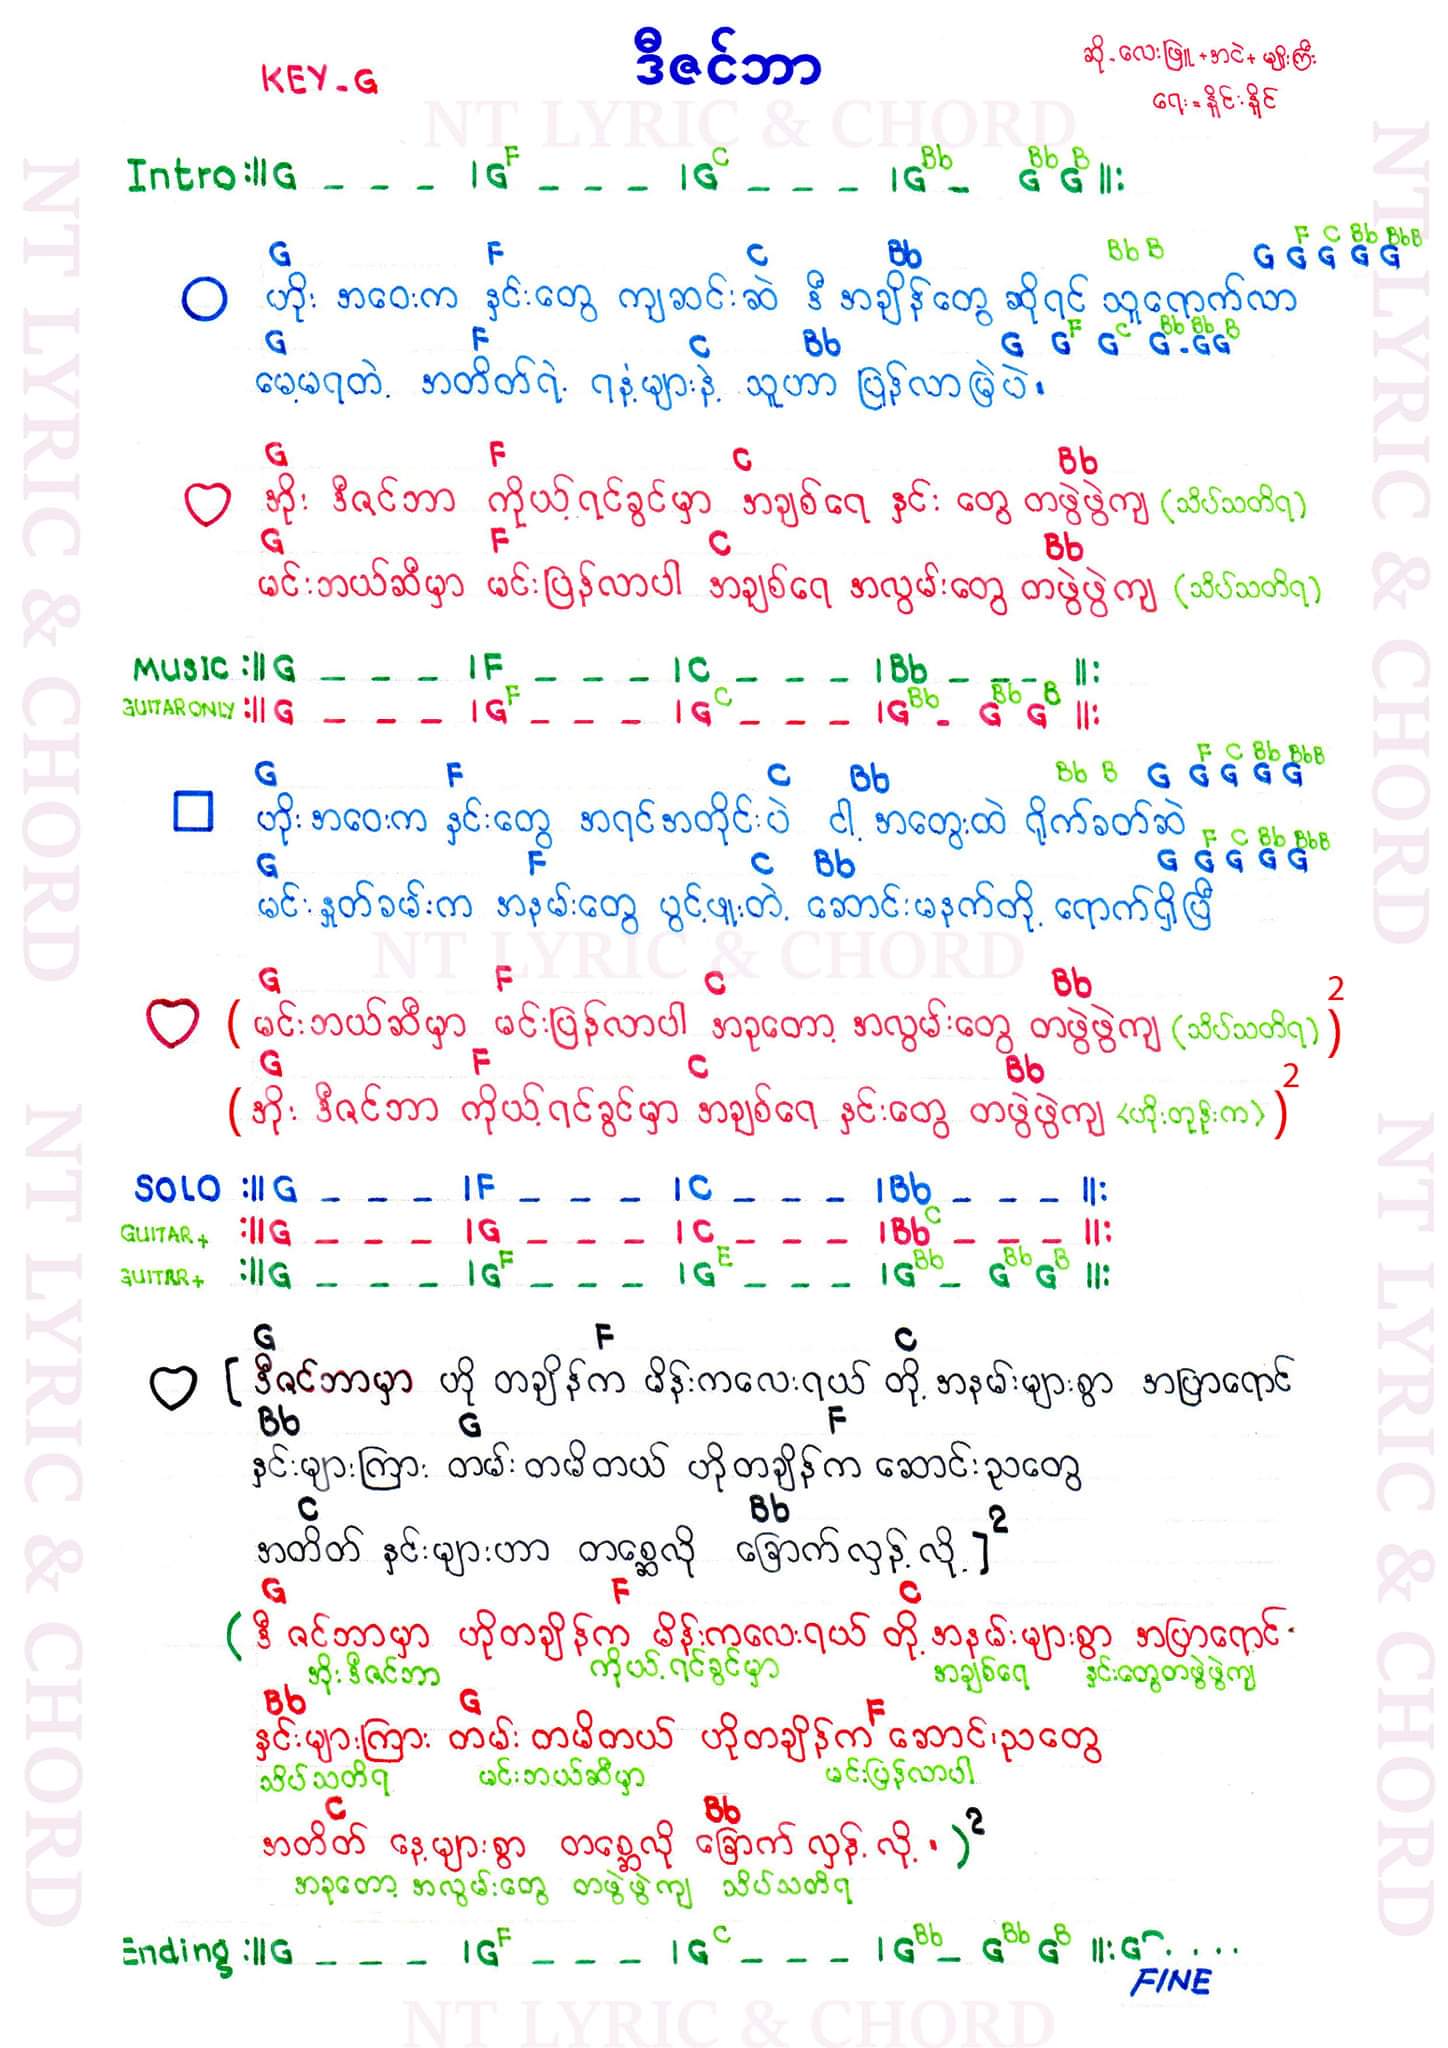 KEY-G
ဒီဇင်ဘာ
ဆို-လေးဖြူ+အငဲ+မျိုးကြီး
ရေး=နိူင်းနိူင်
NT LYRIC & CHORD
Intro :||G _ _ _ |G F _ _ _ |G C _ _ _ |G Bb _ G Bb G B ||:
G F C Bb Bb B G G F G C G Bb G Bb B
ဟိုး အဝေးက နှင်းတွေ ကျဆင်းဆဲ ဒီ အချိန်တွေ ဆိုရင် သူရောက်လာ
G F C Bb G G F G C G Bb - G Bb G B
မေ့မရတဲ့ အတိတ်ရဲ့ ရနံ့များနဲ့ သူဟာ ပြန်လာမြဲပဲ။
G F C Bb
အိုး ဒီဇင်ဘာ ကိုယ့်ရင်ခွင်မှာ အချစ်ရေ နှင်း တွေ တဖွဲဖွဲကျ (သိပ်သတိရ)
G F C Bb
မင်းဘယ်ဆီမှာ မင်းပြန်လာပါ အချစ်ရေ အလွမ်းတွေ တဖွဲဖွဲကျ (သိပ်သတိရ)
MUSIC :||G _ _ _ |F _ _ _ |C _ _ _ |Bb _ _ _ ||:
GUITAR ONLY :||G _ _ _ |G F _ _ _ |G C _ _ _ |G Bb _ G Bb G B ||:
G F C Bb Bb B G G F G C G Bb G Bb B
ဟိုးအဝေးက နှင်းတွေ အရင်အတိုင်းပဲ ငါ့ အတွေးထဲ ရိုက်ခတ်ဆဲ
G F C Bb G G F G C G Bb G Bb B
မင်းနှုတ်ခမ်းက အနမ်းတွေ ပွင့်ဖူးတဲ့ ဆောင်းမနက်တို့ ရောက်ရှိပြီ
NT LYRIC & CHORD
G F C Bb
(မင်းဘယ်ဆီမှာ မင်းပြန်လာပါ အခုတော့ အလွမ်းတွေ တဖွဲဖွဲကျ (သိပ်သတိရ))2
G F C Bb
(အိုး ဒီဇင်ဘာ ကိုယ့်ရင်ခွင်မှာ အချစ်ရေ နှင်းတွေ တဖွဲဖွဲကျ <ဟိုးတုန်းက>)2
SOLO :||G _ _ _ |F _ _ _ |C _ _ _ |Bb _ _ _ ||:
GUITAR+ :||G _ _ _ |G _ _ _ |C _ _ _ |Bb C _ _ _ ||:
GUITAR+ :||G _ _ _ |G F _ _ _ |G E _ _ _ |G Bb _ G Bb G B ||:
G F C
[ဒီဇင်ဘာမှာ ဟို တချိန်က မိန်းကလေးရယ် တို့ အနမ်းများစွာ အပြာရောင်
Bb G F
နှင်းများကြား တမ်းတမိတယ် ဟိုတချိန်က ဆောင်းညတွေ
C Bb
အတိတ် နှင်းများဟာ တစ္ဆေလို ခြောက်လှန့်လို့]2
G F C
(ဒီ ဇင်ဘာမှာ ဟိုတချိန်က မိန်းကလေးရယ် တို့ အနမ်းများစွာ အပြာရောင်
အိုးဒီဇင်ဘာ ကိုယ့်ရင်ခွင်မှာ အချစ်ရေ နှင်းတွေတဖွဲဖွဲကျ
Bb G F
နှင်းများကြား တမ်းတမိတယ် ဟိုတချိန်က ဆောင်းညတွေ
သိပ်သတိရ မင်းဘယ်ဆီမှာ မင်းပြန်လာပါ
C Bb
အတိတ် နေ့များစွာ တစ္ဆေလို ခြောက် လှန့်လို့။)2
အခုတော့ အလွမ်းတွေ တဖွဲဖွဲကျ သိပ်သတိရ
Ending :||G _ _ _ |G F _ _ _ |G C _ _ _ |G Bb _ G Bb G B ||: G . . . .
FINE
NT LYRIC & CHORD
NT LYRIC & CHORD
NT LYRIC & CHORD
NT LYRIC & CHORD
NT LYRIC & CHORD